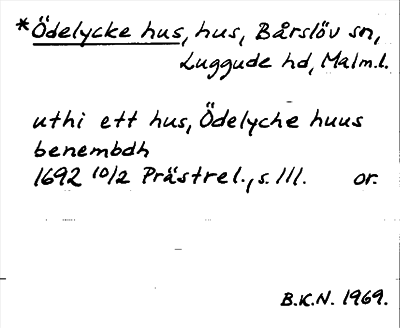 *Ödelycke hus, hus, Bårslöv sn,
Luggude hd, Malm.l.
uthi ett hus, Ödelyche huus
benembdh
1692 10/2 Prästrel., s. 111. or.
B.K.N. 1969.